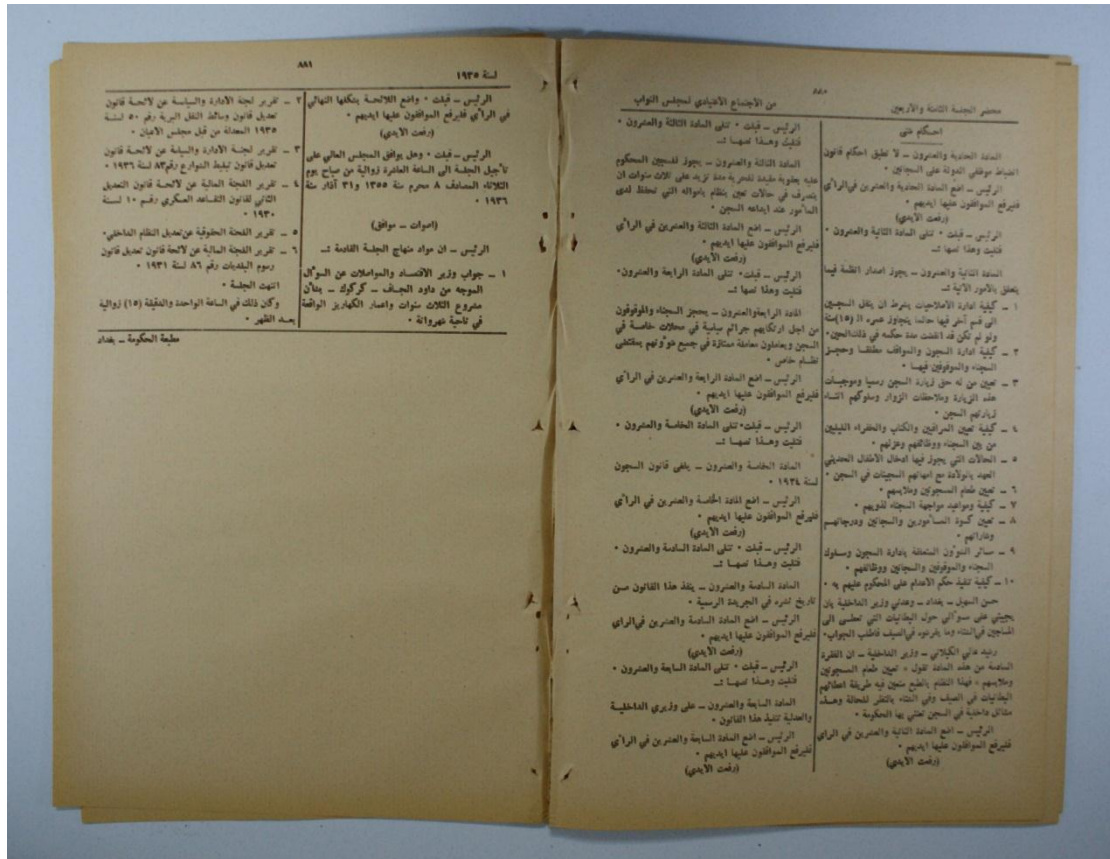 ٥٥٠
محضر الجلسة الثامنة والاربعين
من الاجتماع الاعتيادي لمجلس النواب
احكام شتى
المادة الحادية والعشرون ــ لا تطبق احكام قانون
انضباط موظفي الدولة على السجانين ٠
الرئيس ــ اضع المادة الحادية والعشرين في الرأي
فليرفع الموافقون عليها ايديهم ٠
(رفعت الأيدي)
الرئيس ــ قبلت ٠ تتلى المادة الثانية والعشرون ٠
فتليت وهذا نصها :ــ
المادة الثانية والعشرون ــ يجوز اصدار انظمة فيما
يتعلق بالامور الآتية :ــ
١ ــ كيفية ادارة الاصلاحيات بشرط ان ينقل السجين
الى قسم آخر فيها حالما يتجاوز عمره الـ (١٥) سنة
ولو لم تكن قد انقضت مدة حكمه في ذلك الحين ٠
٢ ــ كيفية ادارة السجون والمواقف مطلقا وحجز
السجناء والموقوفين فيها ٠
٣ ــ تعيين من له حق زيارة السجن رسميا وموجبات
هذه الزيارة وملاحظات الزوار وسلوكهم اثناء
زيارتهم السجن ٠
٤ ــ كيفية تعيين المراقبين والكتاب والخفراء الليليين
من بين السجناء ووظائفهم وعزلهم ٠
٥ ــ الحالات التي يجوز فيها ادخال الأطفال الحديثي
العهد بالولادة مع امهاتهم السجينات في السجن ٠
٦ ــ تعيين طعام المسجونين وملابسهم ٠
٧ ــ كيفية ومواعيد مواجهة السجناء لذويهم ٠
٨ ــ تعيين كسوة المأمورين والسجانين ودرجاتهم
وشاراتهم ٠
٩ ــ سائر الشؤون المتعلقة بادارة السجون وسلوك
السجناء والموقوفين والسجانين ووظائفهم ٠
١٠ ــ كيفية تنفيذ حكم الاعدام على المحكوم عليهم به ٠
حسن السهيل ــ بغداد ــ وعدني وزير الداخلية بان
يجيبني على سؤالي حول البطانيات التي تعطى الى
المساجين في الشتاء وما يفرشونه في الصيف فاطلب الجواب ٠
رشيد عالي الكيلاني ــ وزير الداخلية ــ ان الفقرة
السادسة من هذه المادة تقول « تعيين طعام المسجونين
وملابسهم » فهذا النظام بالطبع ستعين فيه طريقة اعطائهم
البطانيات في الصيف وفي الشتاء بالنظر للحالة وهذه
مسائل داخلية في السجن تعتني بها الحكومة ٠
الرئيس ــ اضع المادة الثانية والعشرين في الراي
فليرفع الموافقون عليها ايديهم ٠
(رفعت الأيدي)
الرئيس ــ قبلت ٠ تتلى المادة الثالثة والعشرون ٠
فتليت وهذا نصها :ــ
المادة الثالثة والعشرون ــ يجوز للسجين المحكوم
عليه بعقوبة مقيدة للحرية مدة تزيد على ثلاث سنوات ان
يتصرف في حالات تعين بنظام بامواله التي تحفظ لدى
المأمور عند ايداعه السجن ٠
الرئيس ــ اضع المادة الثالثة والعشرين في الرأي
فليرفع الموافقون عليها ايديهم ٠
(رفعت الأيدي)
الرئيس ــ قبلت ٠ تتلى المادة الرابعة والعشرون ٠
فتليت وهذا نصها :ــ
المادة الرابعة والعشرون ــ يحجز السجناء والموقوفون
من اجل ارتكابهم جرائم سياسية في محلات خاصة في
السجن ويعاملون معاملة ممتازة في جميع شؤونهم بمقتضى
نظام خاص ٠
الرئيس ــ اضع المادة الرابعة والعشرين في الرأي
فليرفع الموافقون عليها ايديهم ٠
(رفعت الأيدي)
الرئيس ــ قبلت ٠ تتلى المادة الخامسة والعشرون ٠
فتليت وهذا نصها :ــ
المادة الخامسة والعشرون ــ يلغى قانون السجون
لسنة ١٩٢٤ ٠
الرئيس ــ اضع المادة الخامسة والعشرين في الرأي
فليرفع الموافقون عليها ايديهم ٠
(رفعت الأيدي)
الرئيس ــ قبلت ٠ تتلى المادة السادسة والعشرون ٠
فتليت وهذا نصها :ــ
المادة السادسة والعشرون ــ ينفذ هذا القانون من
تاريخ نشره في الجريدة الرسمية ٠
الرئيس ــ اضع المادة السادسة والعشرين في الراي
فليرفع الموافقون عليها ايديهم ٠
(رفعت الأيدي)
الرئيس ــ قبلت ٠ تتلى المادة السابعة والعشرون ٠
فتليت وهذا نصها :ــ
المادة السابعة والعشرون ــ على وزيري الداخلية
والعدلية تنفيذ هذا القانون ٠
الرئيس ــ اضع المادة السابعة والعشرين في الرأي
فليرفع الموافقون عليها ايديهم ٠
(رفعت الأيدي)
لسنة ١٩٣٥
٨٨١
الرئيس ــ قبلت ٠ واضع اللائحة بشكلها النهائي
في الرأي فليرفع الموافقون عليها ايديهم ٠
(رفعت الايدي)
الرئيس ــ قبلت ٠ وهل يوافق المجلس العالي على
تأجيل الجلسة الى الساعة العاشرة زوالية من صباح يوم
الثلاثاء المصادف ٨ محرم سنة ١٣٥٥ و٣١ آذار سنة
١٩٣٦ ٠
(اصوات ــ موافق)
الرئيس ــ ان مواد منهاج الجلسة القادمة :ــ
١ ــ جواب وزير الاقتصاد والمواصلات عن السؤال
الموجه من داود الجاف ــ كركوك ــ بشأن
مشروع الثلاث سنوات واعمار الكهاريز الواقعة
في ناحية شهروانة ٠
٢ ــ تقرير لجنة الادارة والسياسة عن لائحة قانون
تعديل قانون وسائط النقل البرية رقم ٥٠ لسنة
١٩٣٥ المعدلة من قبل مجلس الاعيان ٠
٣ ــ تقرير لجنة الادارة والسياسة عن لائحة قانون
تعديل قانون تبليط الشوارع رقم ٨٣ لسنة ١٩٣٦ ٠
٤ ــ تقرير اللجنة المالية عن لائحة قانون التعديل
الثاني لقانون التقاعد العسكري رقم ١٠ لسنة
١٩٣٠ ٠
٥ ــ تقرير اللجنة الحقوقية عن تعديل النظام الداخلي ٠
٦ ــ تقرير اللجنة المالية عن لائحة قانون تعديل قانون
رسوم البلديات رقم ٨٦ لسنة ١٩٣١ ٠
انتهت الجلسة ٠
وكان ذلك في الساعة الواحدة والدقيقة (١٥) زوالية
بعد الظهر ٠
مطبعة الحكومة ــ بغداد